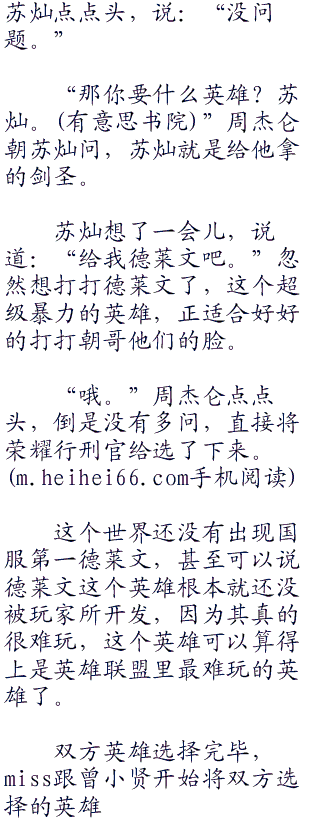 苏灿点点头，说：“没问
题。”
“那你要什么英雄？苏
灿。(有意思书院)”周杰仑
朝苏灿问，苏灿就是给他拿
的剑圣。
苏灿想了一会儿，说
道：“给我德莱文吧。”忽
然想打打德莱文了，这个超
级暴力的英雄，正适合好好
的打打朝哥他们的脸。
“哦。”周杰仑点点
头，倒是没有多问，直接将
荣耀行刑官给选了下来。
(m.heihei66.com手机阅读)
这个世界还没有出现国
服第一德莱文，甚至可以说
德莱文这个英雄根本就还没
被玩家所开发，因为其真的
很难玩，这个英雄可以算得
上是英雄联盟里最难玩的英
雄了。
双方英雄选择完毕，
miss跟曾小贤开始将双方选
择的英雄